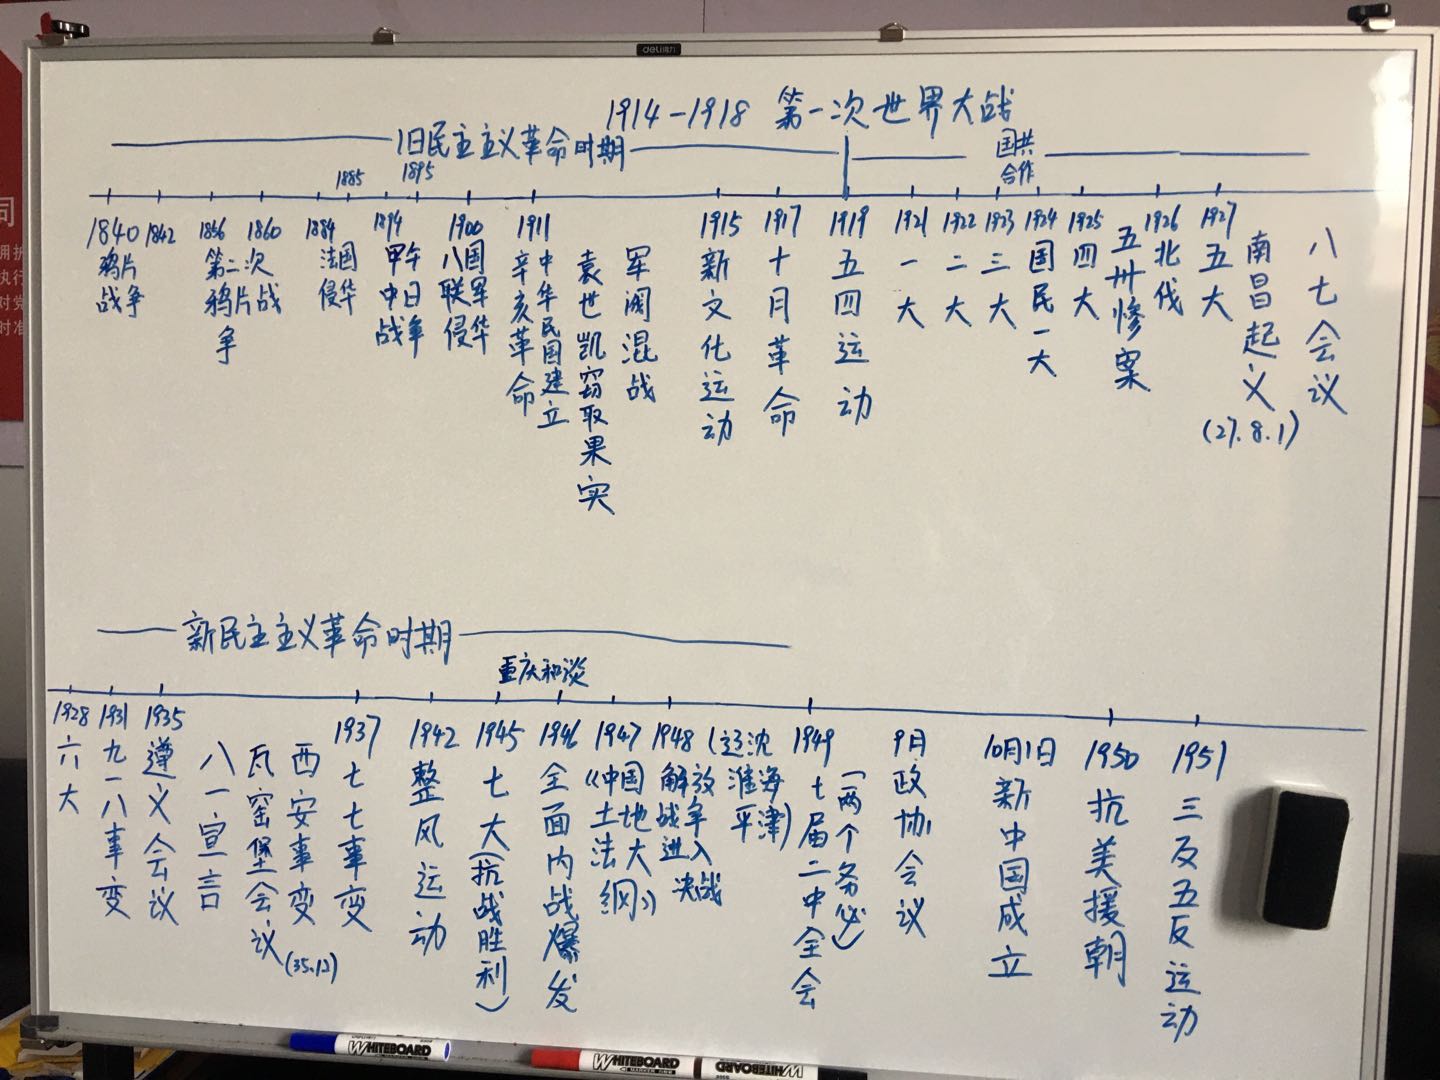 deli得力
1914-1918 第一次世界大战
旧民主主义革命时期
国共
合作
1885
1895
1840
鸦片
战争
1842
1856
1860
第二次
鸦片战
争
1884
法国
侵华
1894
甲午
中日
战争
1900
八国
联军
侵华
1911
辛亥革命
中华民国建立
袁世凯窃取果实
军阀混战
1915
新文化运动
1917
十月革命
1919
五四运动
1921
一大
1922
二大
1923
三大
1924
国民一大
1925
四大
五卅惨案
1926
北伐
1927
五大
南昌起义
(27.8.1)
八七会议
新民主主义革命时期
重庆和谈
1928
六大
1931
九一八事变
1935
遵义会议
八一宣言
瓦窑堡会议
西安事变
(35.12)
1937
七七事变
1942
整风运动
1945
七大(抗战胜利)
1946
全面内战爆发
1947
《中国
土地
法大
纲》
1948
解放
战争
进入
决战
(辽沈
淮海
平津)
1949
七届二中全会
(两个务必)
9月
政协会议
10月1日
新中国成立
1950
抗美援朝
1951
三反五反运动
WHITEBOARD
MARKER PEN
WHITEBOARD
WHITEBOARD
同
拥护
执行
对党
时准